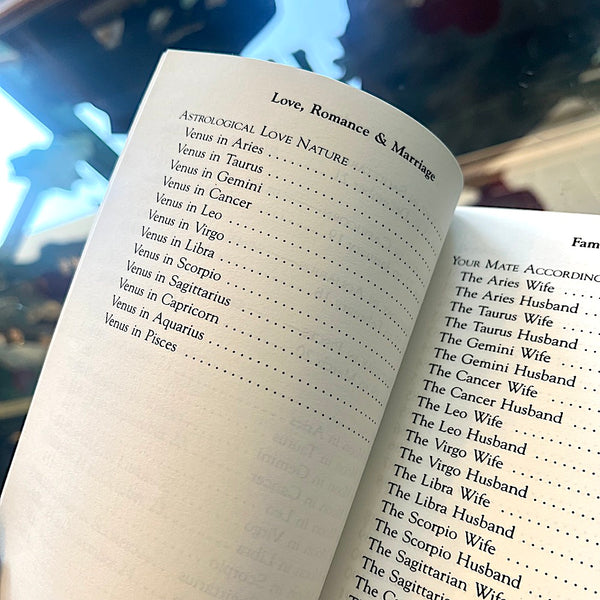 Love, Romance & Marriage
ASTROLOGICAL LOVE NATURE ..........
Venus in Aries ..........
Venus in Taurus ..........
Venus in Gemini ..........
Venus in Cancer ..........
Venus in Leo ..........
Venus in Virgo ..........
Venus in Libra ..........
Venus in Scorpio ..........
Venus in Sagittarius ..........
Venus in Capricorn ..........
Venus in Aquarius ..........
Venus in Pisces ..........
Fam
YOUR MATE ACCORDING
The Aries Wife .....
The Aries Husband ..
The Taurus Wife .....
The Taurus Husband ..
The Gemini Wife .....
The Gemini Husband ..
The Cancer Wife .....
The Cancer Husband ..
The Leo Wife .....
The Leo Husband .....
The Virgo Wife .....
The Virgo Husband .....
The Libra Wife .....
The Libra Husband .....
The Scorpio Wife .....
The Scorpio Husband .....
The Sagittarian Wife ..
The Sagittarian
The